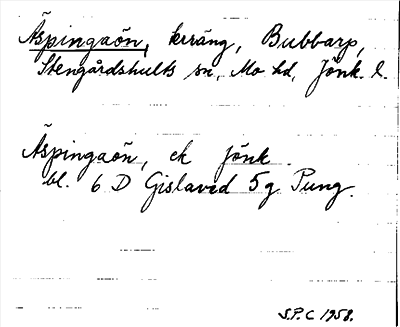 Äspingaön, krräng, Bubbarp,
Stengårdshults sn, Mo hd, Jönk. l.
Äspingaön, ek Jönk.
bl. 6 D Gislaved 5 g Pung.
S.P.C 1958.